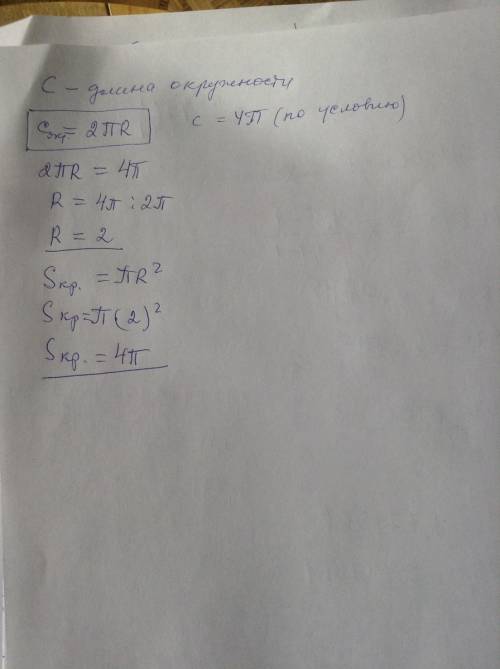 C – длина окружности
Cокр = 2πR
C = 4π (по условию)
2πR = 4π
R = 4π : 2π
R = 2
Sкр. = πR²
Sкр = π(2)²
Sкр. = 4π